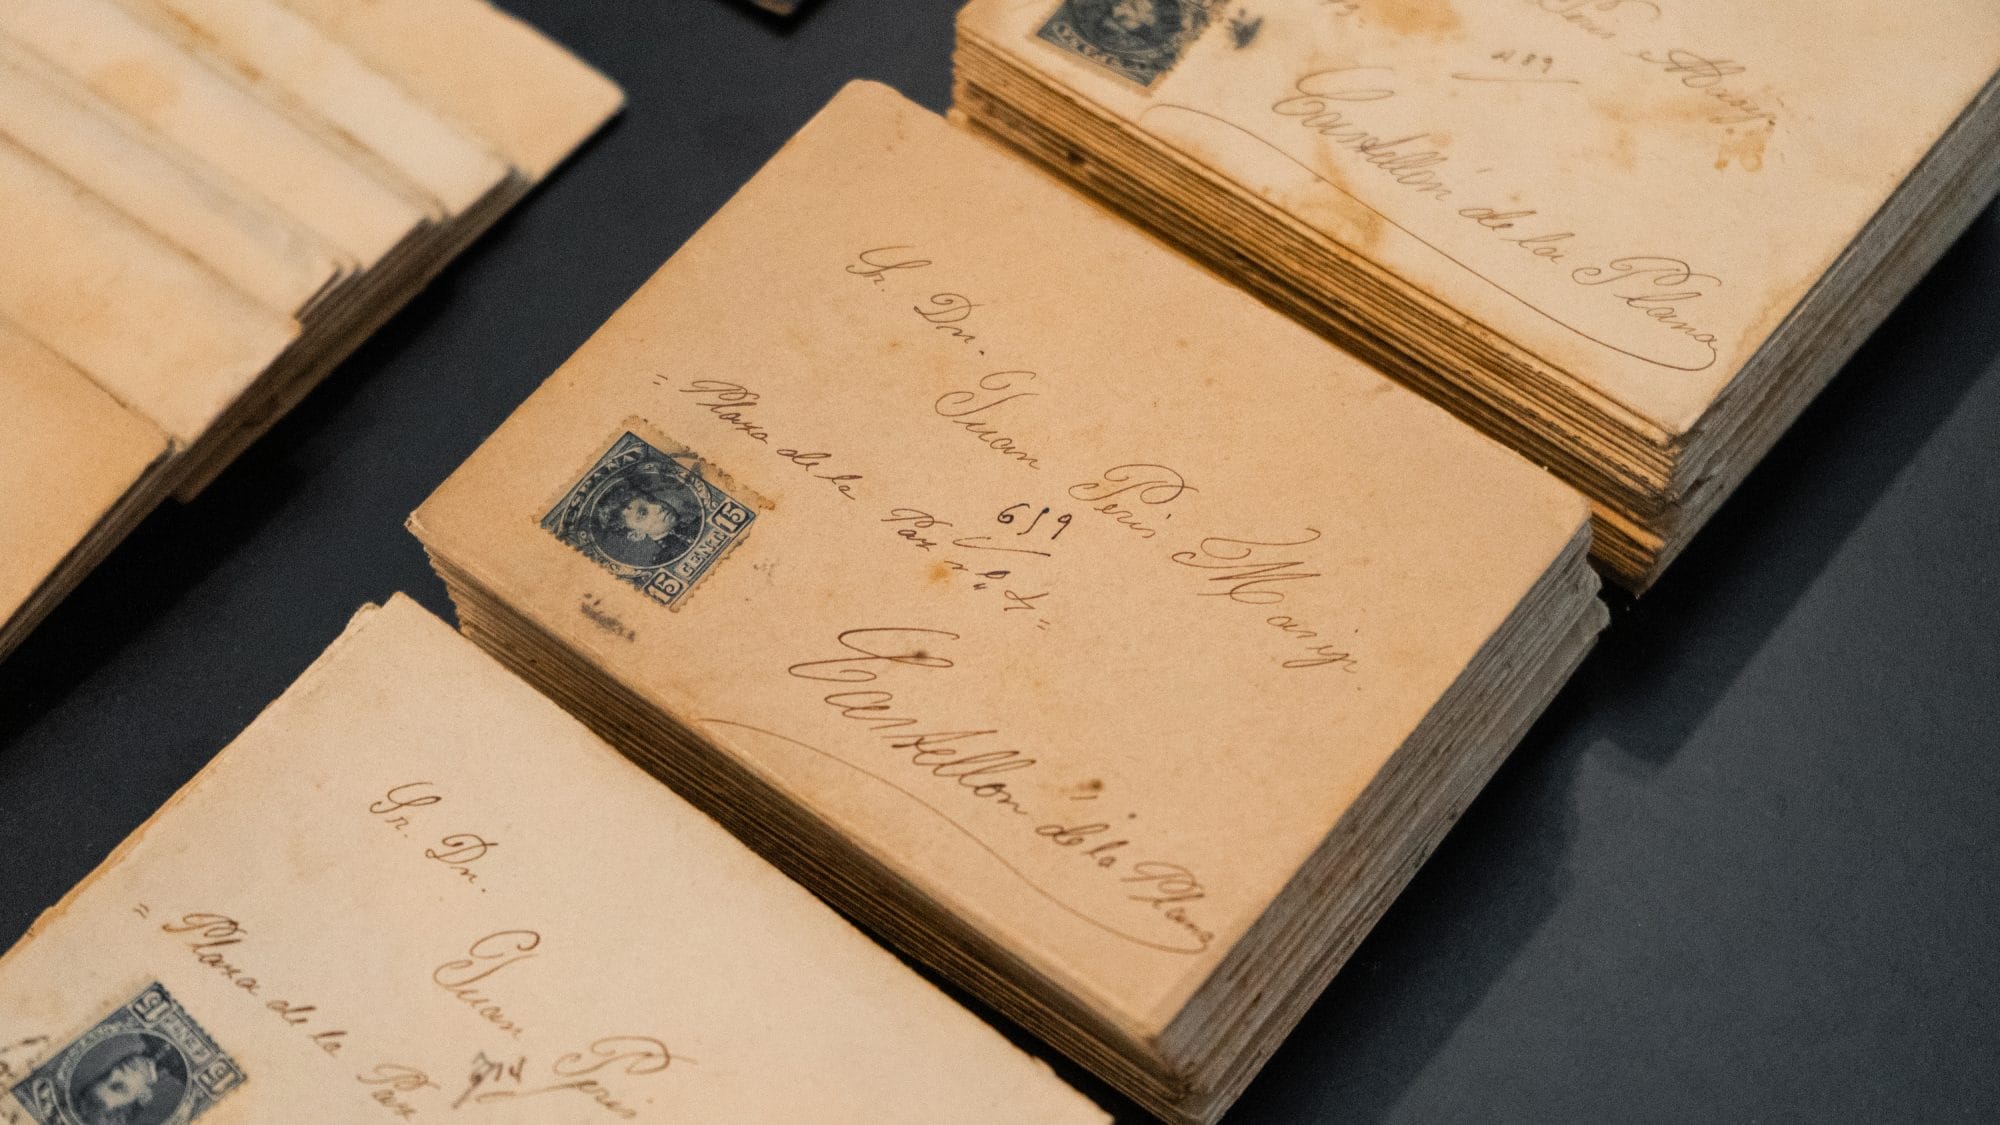 Peris
219
Castellón de la Plana
Sr. Dn.
Juan Peris Marí
= Plaza de la Paz nº 4 =
619
Castellón de la Plana
ESPAÑA
15 CENTS 15
Sr. Dn.
Juan Peris
= Plaza de la Paz
15 15